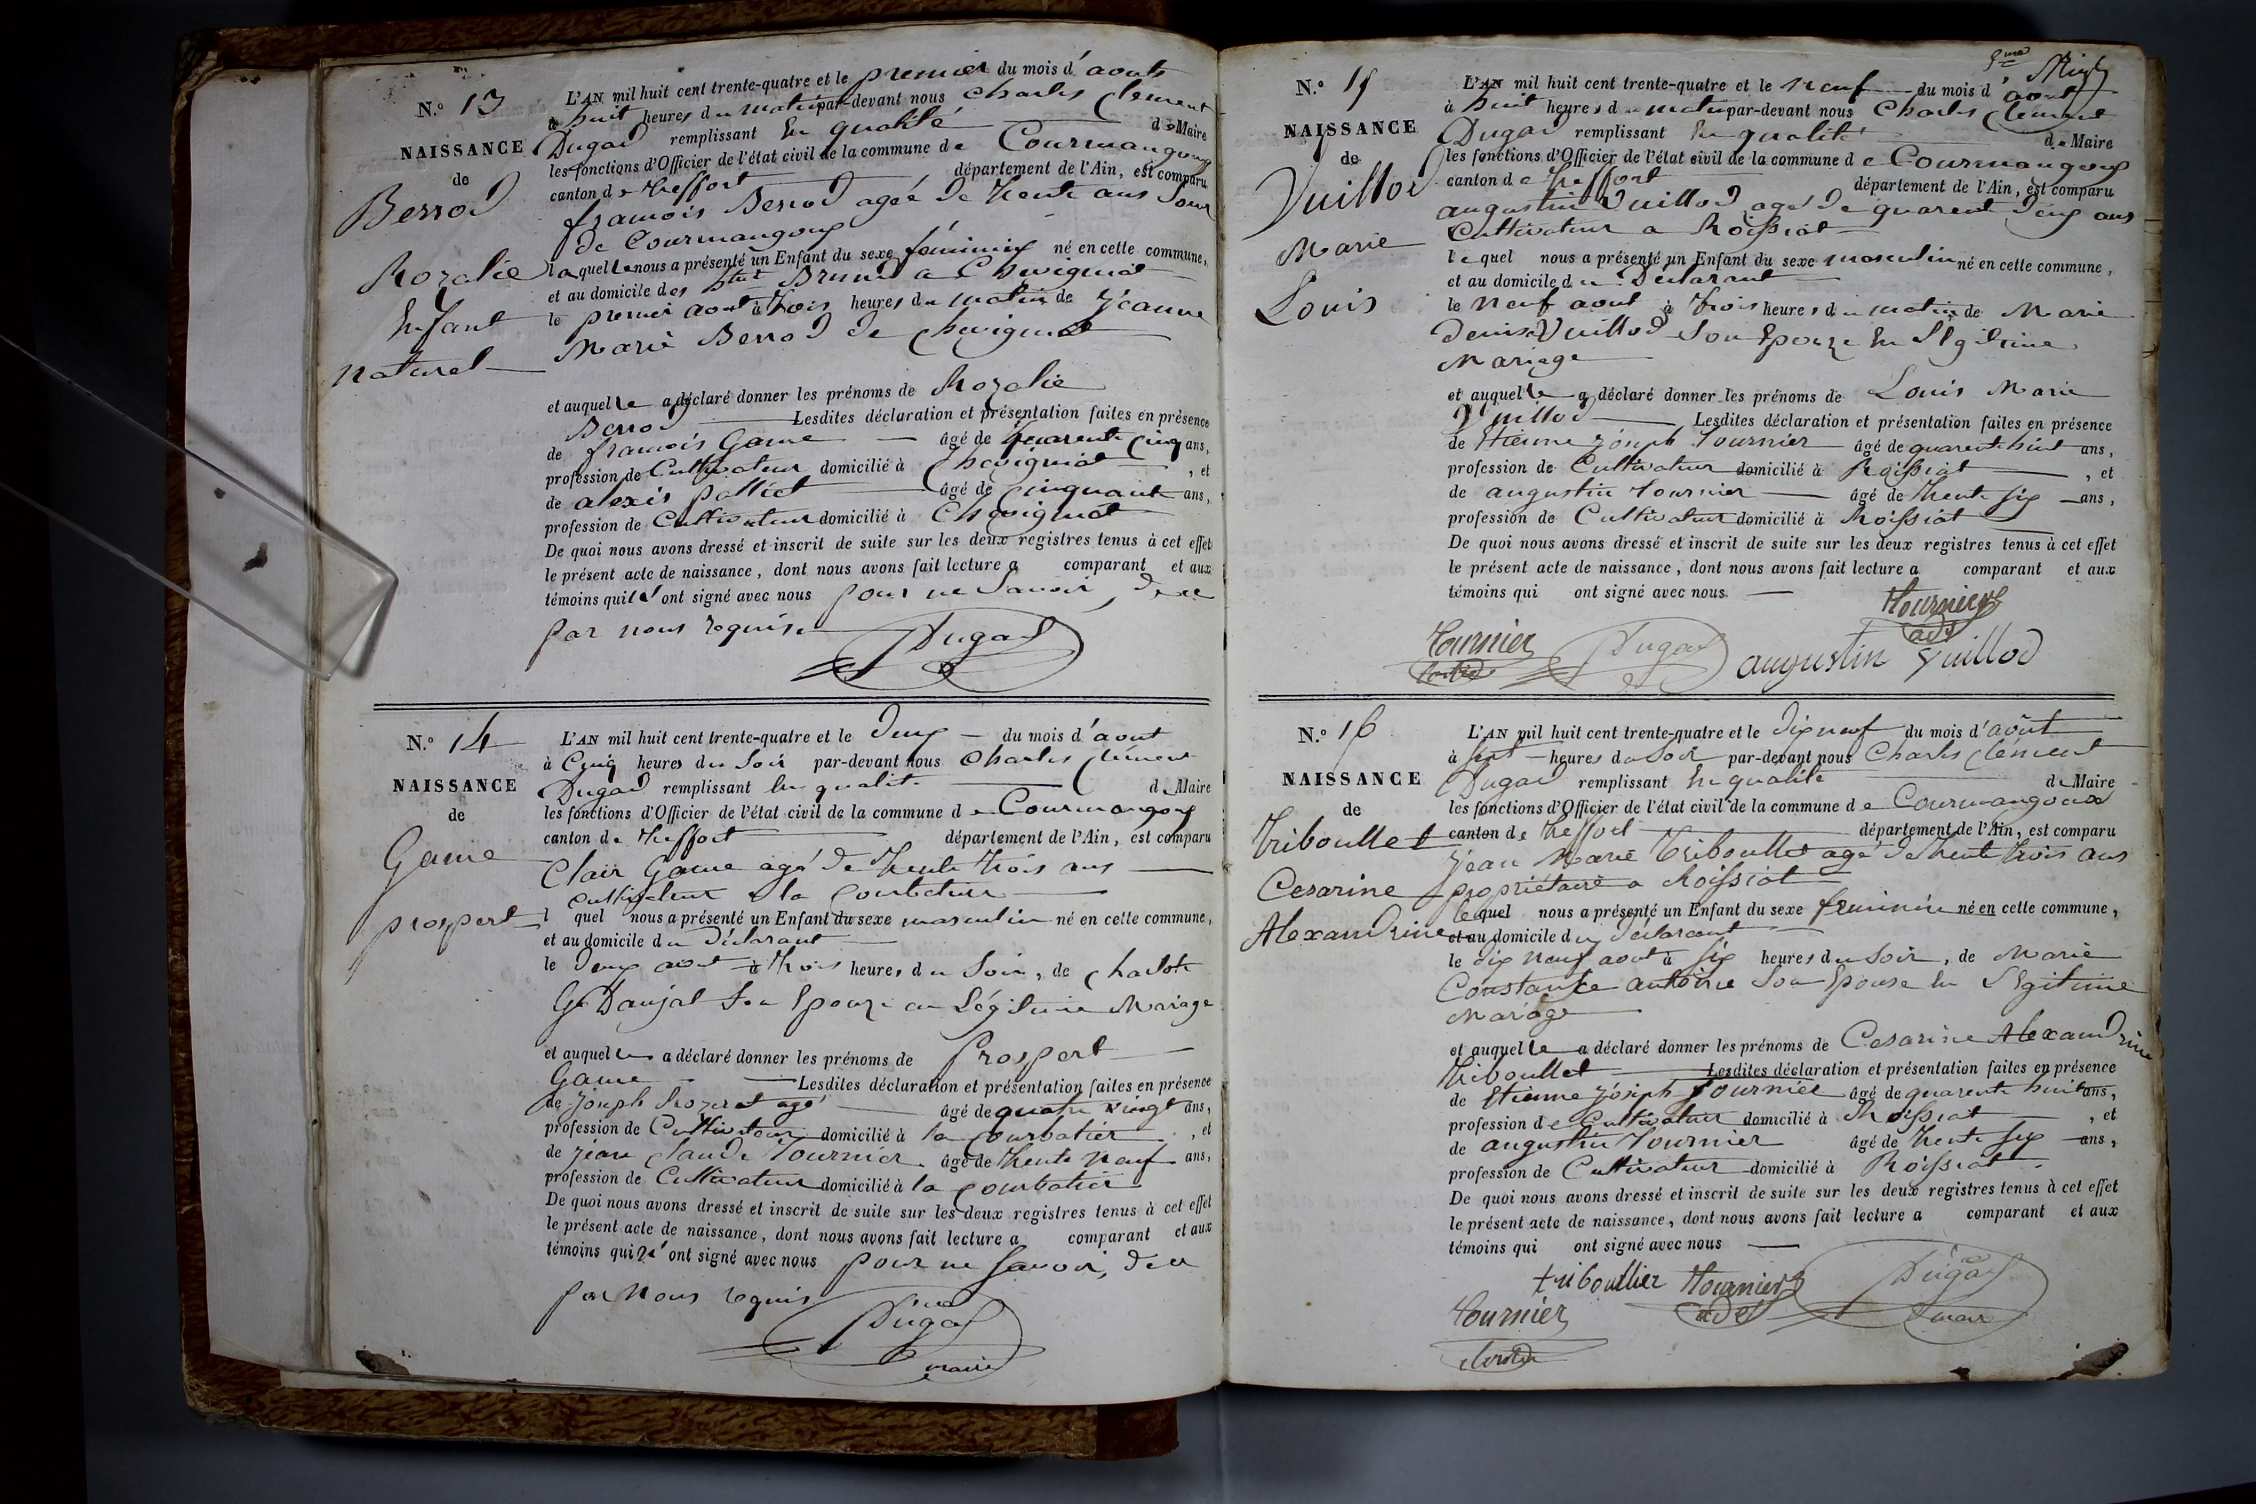 N.º 13
NAISSANCE
de
Berrod
Rozalie
Enfant
naturel
L'AN mil huit cent trente-quatre et le premier du mois d'aout
à huit heures du matin par-devant nous Charles Clément
Dugad remplissant En qualité de Maire
les fonctions d'Officier de l'état civil de la commune de Courmangoux
canton de treffort département de l'Ain, est comparu
françois Berrod ageé de trente ans
de Courmangoux
laquelle nous a présenté un Enfant du sexe féminin né en cette commune,
et au domicile des Brund a Chevignat
le premier aout à trois heures du matin de Jeanne
Marie Berrod de Chevignat
et auquelle a déclaré donner les prénoms de Rozalie
Berrod Lesdites déclaration et présentation faites en présence
de françois Game âgé de quarente cinq ans,
profession de Cultivateur domicilié à Chevignat, et
de alexis pobliet âgé de cinquante ans,
profession de Cultivateur domicilié à Chevignat
De quoi nous avons dressé et inscrit de suite sur les deux registres tenus à cet effet
le présent acte de naissance, dont nous avons fait lecture a comparant et aux
témoins qui n'ont signé avec nous pour ne Savoir, de ce
par nous requis
Dugad
N.º 14
NAISSANCE
de
Game
prospert
L'AN mil huit cent trente-quatre et le deux du mois d'aout
à Cinq heures du Soir par-devant nous Charles Clément
Dugad remplissant En qualité de Maire
les fonctions d'Officier de l'état civil de la commune de Courmangoux
canton de treffort département de l'Ain, est comparu
Clair Game agé de trente trois ans
cultivateur a la Courbatiere
l quel nous a présenté un Enfant du sexe masculin né en cette commune,
et au domicile du Déclarant
le deux aout à trois heures du Soir, de Charlote
Daujat Son Epouze en Légitime Mariage
et auquel a déclaré donner les prénoms de Prospert
Game Lesdites déclaration et présentation faites en présence
de Joseph agé âgé de quatre vingt ans,
profession de Cultivateur domicilié à la Courbatier, et
de Jean Claude Tournier âgé de trente neuf ans,
profession de Cultivateur domicilié à la Courbatier
De quoi nous avons dressé et inscrit de suite sur les deux registres tenus à cet effet
le présent acte de naissance, dont nous avons fait lecture a comparant et aux
témoins qui n'ont signé avec nous pour ne Savoir, de ce
par Nous requis
Dugad
maire
5me
N.º 15
NAISSANCE
de
Vuillod
Marie
Louis
L'AN mil huit cent trente-quatre et le neuf du mois d'aout
à huit heures du matin par-devant nous Charles Clément
Dugad remplissant En qualité de Maire
les fonctions d'Officier de l'état civil de la commune de Courmangoux
canton de treffort département de l'Ain, est comparu
augustin Vuillod agé de quarente deux ans
Cultivateur a Roissiat
lequel nous a présenté un Enfant du sexe masculin né en cette commune,
et au domicile du Déclarant
le neuf aout à trois heures du matin de Marie
denise Vuillod Son Epouze En Légitime
Mariage
et auquelle a déclaré donner les prénoms de Louis Marie
Vuillod Lesdites déclaration et présentation faites en présence
de Etienne Joseph Tournier âgé de quarente huit ans,
profession de Cultivateur domicilié à Roissiat, et
de augustin Tournier âgé de trente six ans,
profession de Cultivateur domicilié à Roissiat
De quoi nous avons dressé et inscrit de suite sur les deux registres tenus à cet effet
le présent acte de naissance, dont nous avons fait lecture a comparant et aux
témoins qui ont signé avec nous
Tournier
adt
Tournier
Dugad
augustin Vuillod
N.º 16
NAISSANCE
de
Triboullet
Cesarine
Alexandrine
L'AN mil huit cent trente-quatre et le dix neuf du mois d'août
à sept heures du Soir par-devant nous Charles Clément
Dugad remplissant En qualité de Maire
les fonctions d'Officier de l'état civil de la commune de Courmangoux
canton de treffort département de l'Ain, est comparu
Jean Marie Triboullet agé de trente trois ans
propriétaire a Roissiat
lequel nous a présenté un Enfant du sexe feminin né en cette commune,
et au domicile du déclarant
le dix neuf aout à six heures du Soir, de Marie
Constance antoine Son Epouse En Légitime
Mariage
et auquelle a déclaré donner les prénoms de Cesarine Alexandrine
Triboullet Lesdites déclaration et présentation faites en présence
de Etienne Joseph Tournier âgé de quarente huit ans,
profession de Cultivateur domicilié à Roissiat, et
de augustin Tournier âgé de trente six ans,
profession de Cultivateur domicilié à Roissiat
De quoi nous avons dressé et inscrit de suite sur les deux registres tenus à cet effet
le présent acte de naissance, dont nous avons fait lecture a comparant et aux
témoins qui ont signé avec nous
triboullier Tournier
adt
Dugad
maire
Tournier